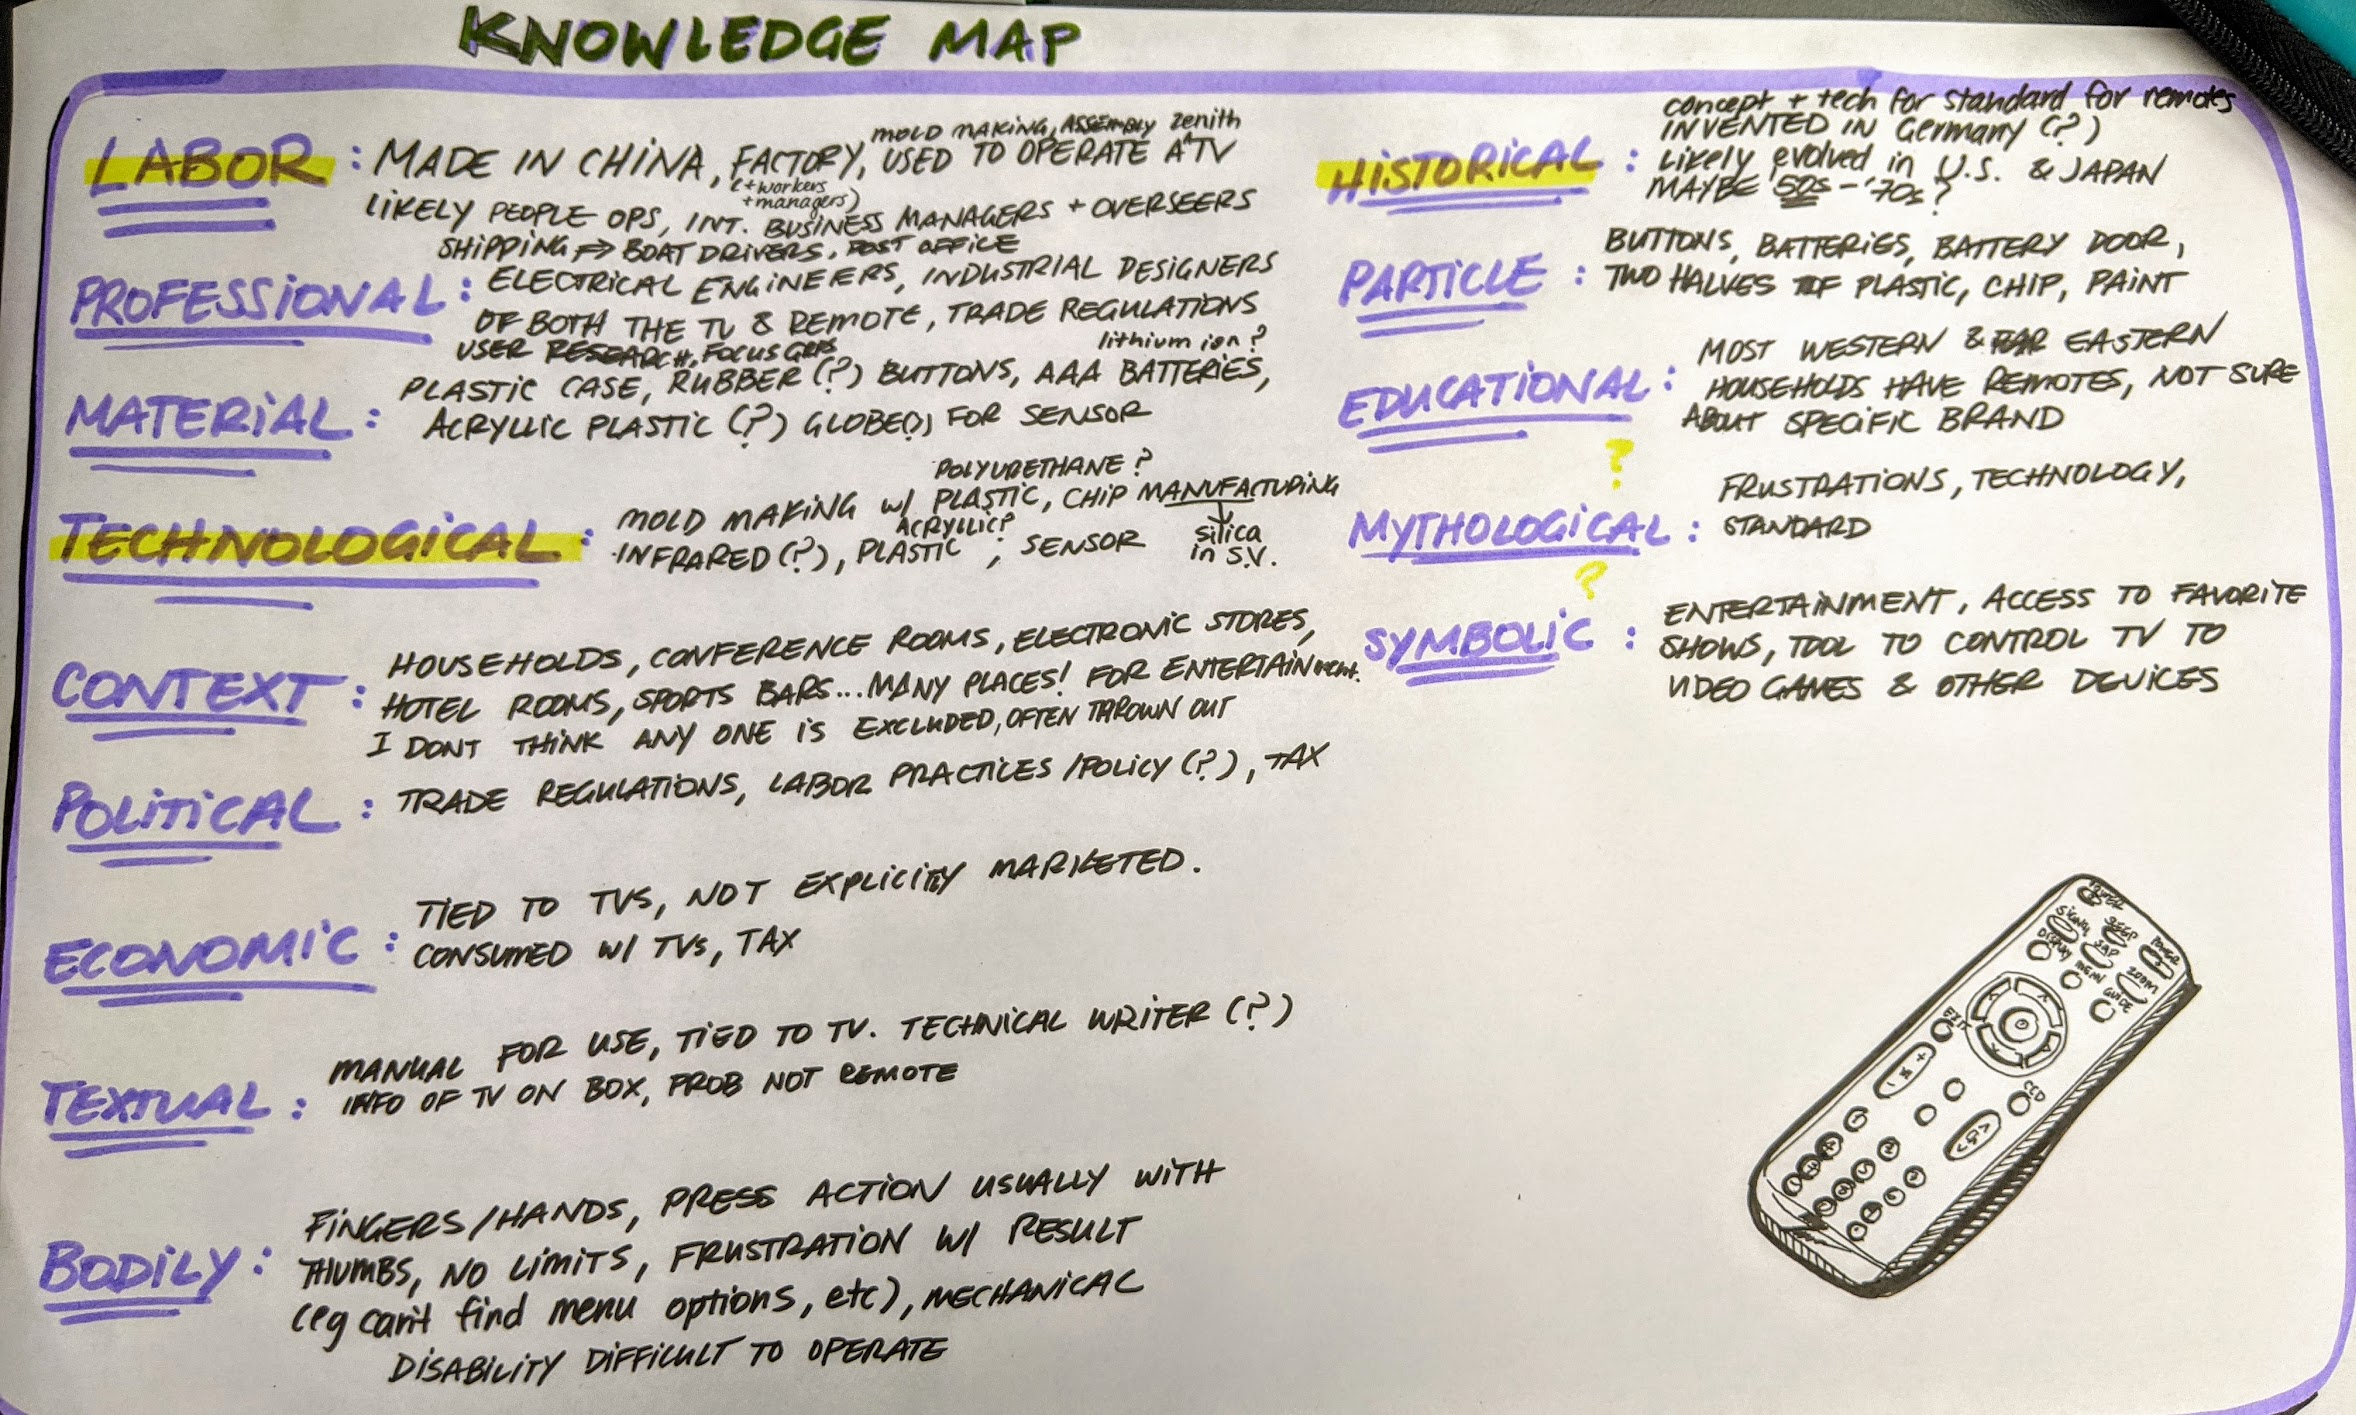 KNOWLEDGE MAP
LABOR : MADE IN CHINA, FACTORY, USED TO OPERATE A TV
mold making, ASSEMBLY zenith
(+workers
+managers)
LIKELY PEOPLE OPS, INT. BUSINESS MANAGERS + OVERSEERS
SHIPPING → BOAT DRIVERS, POST OFFICE
PROFESSIONAL : ELECTRICAL ENGINEERS, INDUSTRIAL DESIGNERS
OF BOTH THE TV & REMOTE, TRADE REGULATIONS
USER RESEARCH, FOCUS GRPS
MATERIAL : PLASTIC CASE, RUBBER (?) BUTTONS, AAA BATTERIES,
lithium ion?
ACRYLLIC PLASTIC (?) GLOBE(?) FOR SENSOR
TECHNOLOGICAL : MOLD MAKING w/ PLASTIC, CHIP MANUFACTURING
POLYURETHANE?
INFRARED (?), PLASTIC, SENSOR
ACRYLLIC?
silica
in S.V.
CONTEXT : HOUSEHOLDS, CONFERENCE ROOMS, ELECTRONIC STORES,
HOTEL ROOMS, SPORTS BARS...MANY PLACES! FOR ENTERTAINment.
I DONT THINK ANY ONE IS EXCLUDED, OFTEN THROWN OUT
POLITICAL : TRADE REGULATIONS, LABOR PRACTICES/POLICY (?), TAX
ECONOMIC : TIED TO TVS, NOT EXPLICITLY MARKETED.
CONSUMED w/ TVs, TAX
TEXTUAL : MANUAL FOR USE, TIED TO TV. TECHNICAL WRITER (?)
INFO OF TV ON BOX, PROB NOT REMOTE
BODILY : FINGERS/HANDS, PRESS ACTION USUALLY WITH
THUMBS, NO LIMITS, FRUSTRATION w/ RESULT
(eg can't find menu options, etc), MECHANICAL
DISABILITY DIFFICULT TO OPERATE
concept + tech for standard for remotes
HISTORICAL : INVENTED IN Germany (?)
Likely evolved in U.S. & JAPAN
MAYBE 50s - '70s?
PARTICLE : BUTTONS, BATTERIES, BATTERY DOOR,
TWO HALVES OF PLASTIC, CHIP, PAINT
EDUCATIONAL : MOST WESTERN & FAR EASTERN
HOUSEHOLDS HAVE REMOTES, NOT SURE
ABOUT SPECIFIC BRAND
?
MYTHOLOGICAL : FRUSTRATIONS, TECHNOLOGY,
STANDARD
?
SYMBOLIC : ENTERTAINMENT, ACCESS TO FAVORITE
SHOWS, TOOL TO CONTROL TV TO
VIDEO GAMES & OTHER DEVICES
POWER
SIGNAL
DISPLAY
SAP
MENU
ZOOM
GUIDE
EXIT